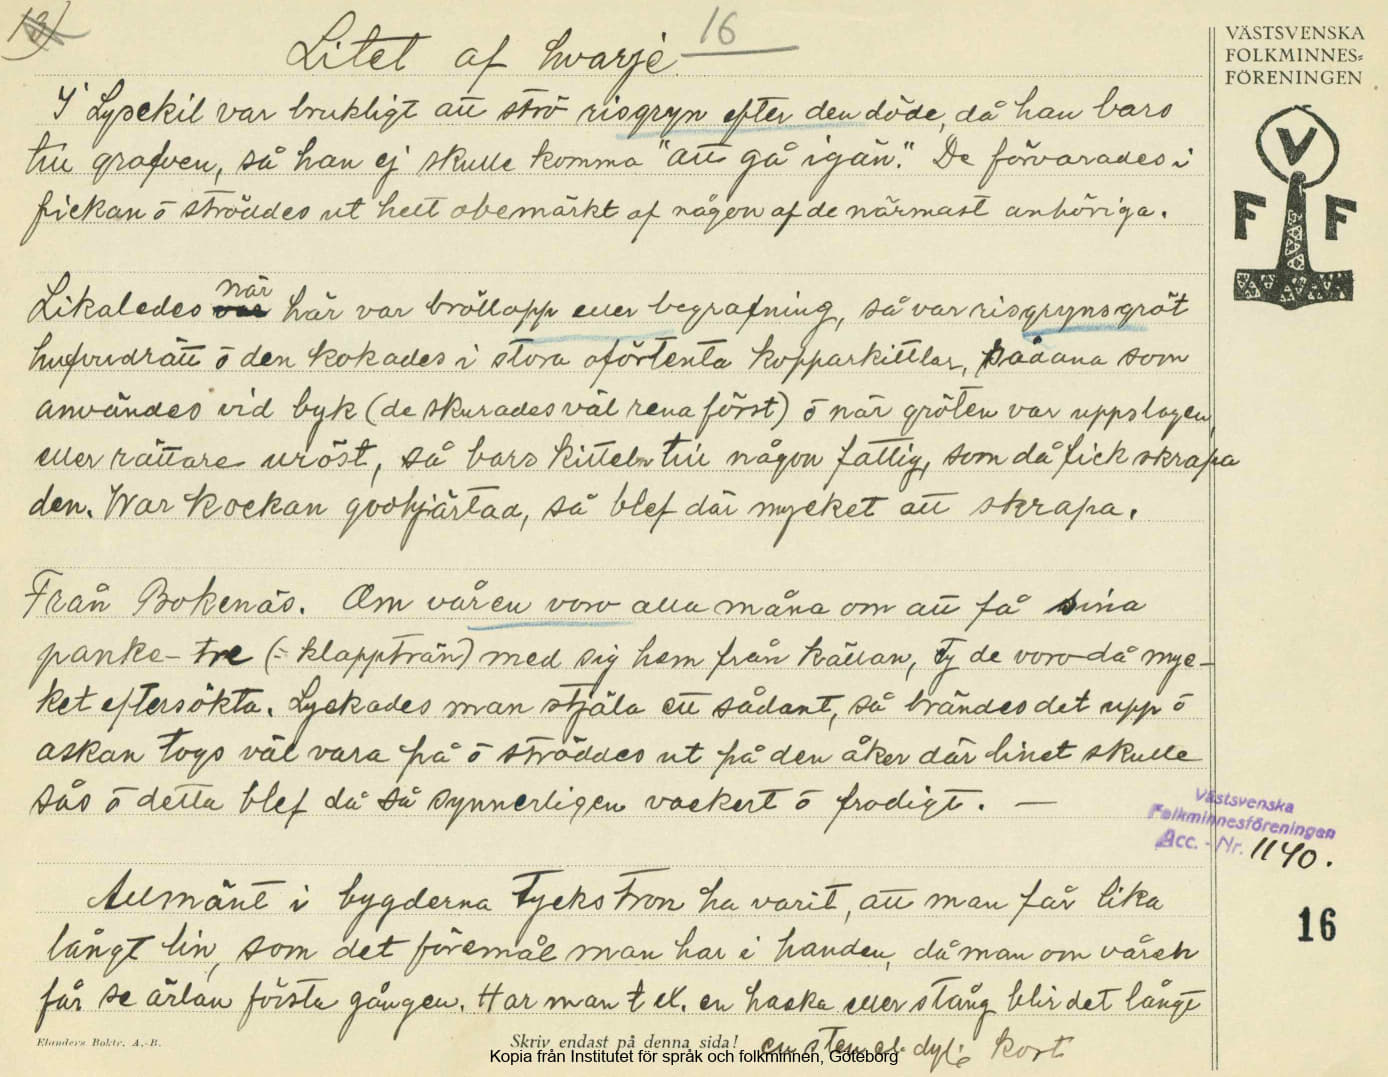 13)
Litet af hvarje
16
VÄSTSVENSKA
FOLKMINNES=
FÖRENINGEN
V
F F
I Lysekil var brukligt att strö risgryn efter den döde, då han bars
till grafven, så han ej skulle komma "att gå igän." De förvarades i
fickan ō ströddes ut helt obemärkt af någon af de närmast anhöriga.
när
Likaledes var här var bröllopp eller begrafning, så var risgrynsgröt
hufvudrätt ō den kokades i stora oförtenta kopparkittlar, sådana som
användes vid byk (de skurades väl rena först) ō när gröten var uppslagen,
eller rättare uröst, så bars kitteln till någon fattig, som då fick skrapa
den. War kockan godhjärtad, så blef där mycket att skrapa.
Från Bokenäs. Om våren voro alla måna om att få sina
panke-tre (= klappträn) med sig hem från källan, ty de voro då myc-
ket eftersökta. Lyckades man stjäla ett sådant, så brändes det upp ō
askan togs väl vara på ō ströddes ut på den åker där linet skulle
sås ō detta blef då så synnerligen vackert ō frodigt. —
Västsvenska
Folkminnesföreningen
Acc. - Nr. 1140.
Allmänt i bygderna tycks tron ha varit, att man får lika
långt lin, som det föremål man har i handen, då man om våren
får se ärlan första gången. Har man t ex. en hacka eller stång blir det långt
16
en sten el. dyl: kort
Elanders Boktr. A.-B.
Skriv endast på denna sida!
Kopia från Institutet för språk och folkminnen, Göteborg